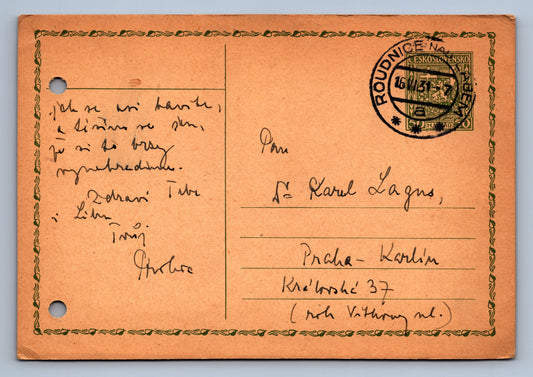 ROUDNICE NAD LABEM
16.VI.31-7
a
ČESKOSLOVENSKO
50 50
jak se asi bavíte,
a těším se, 
že si to brzy
vynahradíme.
Zdraví Tebe
i Libu
Tvůj
Pan
Dr Karel Lagus,
Praha-Karlín
Královská 37
(roh Vítkovy ul.)